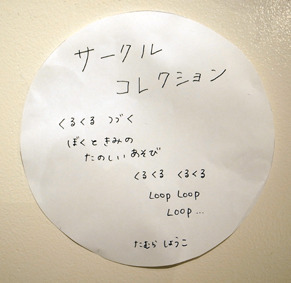 サークル
コレクション
くるくる つづく
ぼくときみの
たのしいあそび
くるくる くるくる
LOOP LOOP
LOOP...
たむら しょうこ